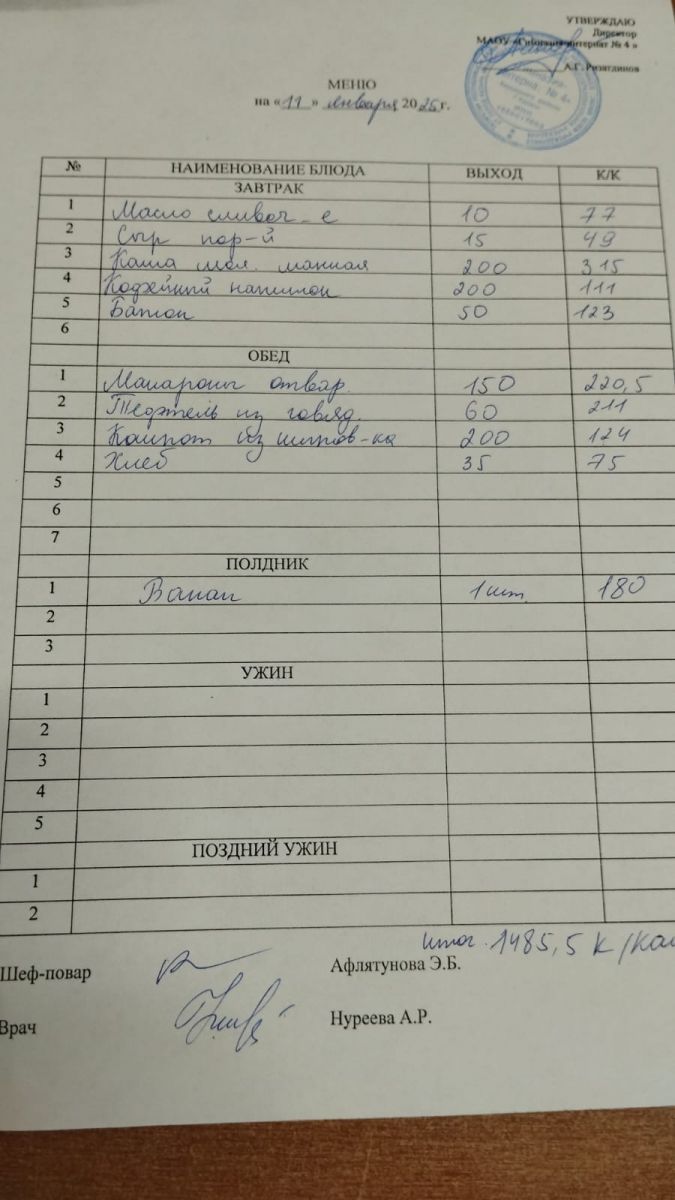 УТВЕРЖДАЮ
Директор
МАОУ «Гимназия-интернат № 4»
А.Г. Ризятдинов
МЕНЮ
на « 11 » января 2025 г.
№ НАИМЕНОВАНИЕ БЛЮДА ВЫХОД К/К
ЗАВТРАК
1 Масло сливоч-е 10 77
2 Сыр пор-й 15 49
3 Каша мол. манная 200 315
4 Кофейный напиток 200 111
5 Батон 50 123
6
ОБЕД
1 Макароны отвар. 150 220,5
2 Тефтель из говяд. 60 211
3 Компот из шипов-ка 200 124
4 Хлеб 35 75
5
6
7
ПОЛДНИК
1 Банан 1 шт. 180
2
3
УЖИН
1
2
3
4
5
ПОЗДНИЙ УЖИН
1
2
итог. 1485,5 к/кал
Шеф-повар Афлятунова Э.Б.
Врач Нуреева А.Р.